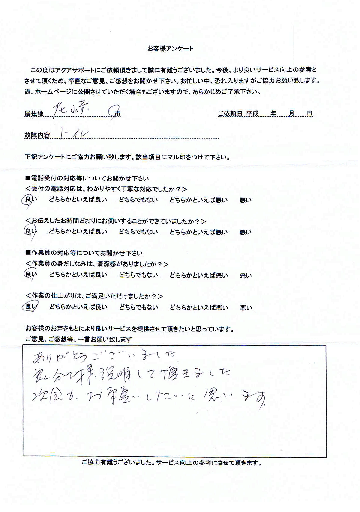 お客様アンケート
この度はアクアサポートにご依頼頂きまして誠に有難うございました。今後、より良いサービス向上の参考と
させて頂くため、率直なご意見、ご感想をお聞かせ下さい。お忙しい中、恐れ入りますがご協力お願い致します。
尚、ホームページに公開させていただく場合もございますので、あらかじめご了承下さい。
ご依頼日 平成 年 月 日
故障内容 トイレ
下記アンケートにご協力お願い致します。該当項目にマル印をつけて下さい。
■電話受付の対応等についてお聞かせ下さい
<受付の電話対応は、わかりやすく丁寧な対応でしたか?>
良い どちらかといえば良い どちらでもない どちらかといえば悪い 悪い
<お伝えしたお時間どおりにお伺いすることができていましたか?>
良い どちらかといえば良い どちらでもない どちらかといえば悪い 悪い
■作業員の対応等についてお聞かせ下さい
<作業員の身だしなみは、清潔感がありましたか?>
良い どちらかといえば良い どちらでもない どちらかといえば悪い 悪い
<作業の仕上がりは、ご満足いただけましたか?>
良い どちらかといえば良い どちらでもない どちらかといえば悪い 悪い
お客様のお声をもとにより良いサービスを提供させて頂きたいと思っています。
ご意見、ご感想等、一言お願い致します
ありがとうございました
説明して頂きました
次回も、お願いしたいと思います
ご協力有難うございました。サービス向上の参考にさせて頂きます。